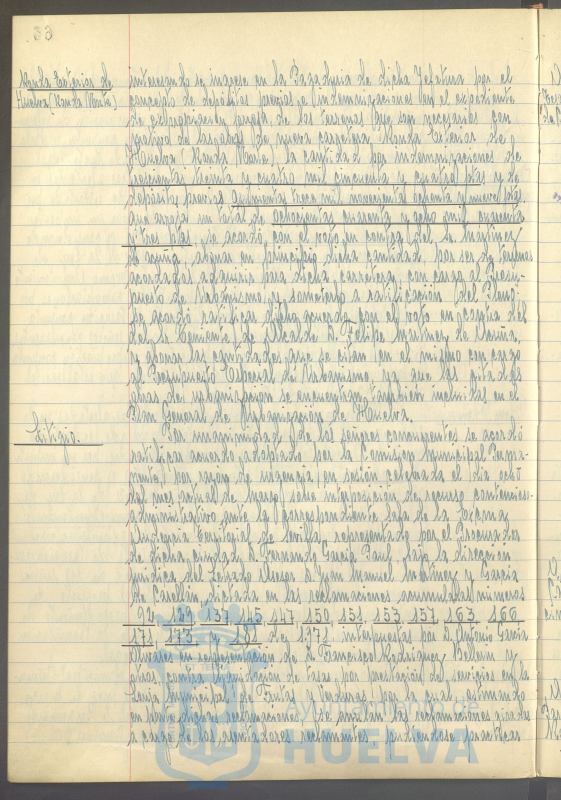 33
Ronda Exterior de
Huelva (Ronda Norte)
interesando se ingrese en la Pagaduria de dicha Jefatura por el
concepto de depósitos previos e indemnizaciones en el expediente
de expropiación parcial de los terrenos que son necesarios con
motivo de las obras de nueva carretera. Ronda Exterior de
Huelva (Ronda Norte), la cantidad por indemnizaciones de
trescientas treinta y cuatro mil cincuenta y cuatro ptas y de
depósitos previos quinientas trece mil novecientas ochenta y nueve ptas.
que arroja un total de ochocientas cuarenta y ocho mil cuarenta
y tres ptas se acordó, con el voto en contra del Sr. Martinez
de Acuña, abonar en principio dicha cantidad por ser de terrenos
acordados adquirir para dicha carretera con cargo al Presu-
puesto de Urbanismo y someterlo a ratificación del Pleno
se acordó ratificar dicho acuerdo con el voto en contra del
del Sr. Teniente de Alcalde D. Felipe Martinez de Acuña,
y abonar las cantidades que se citan en el mismo con cargo
al Presupuesto Especial de Urbanismo, ya que las citadas
obras de urbanización se encuentran también incluidas en el
Plan General de Urbanización de Huelva.
Litigio.
Por unanimidad de los señores concurrentes se acordó
ratificar acuerdo adoptado por la Comision Municipal Perma-
nente, por razón de urgencia, en sesión celebrada el dia ocho
del mes actual de Marzo sobre interposición de recurso contencioso-
administrativo ante la correspondiente Sala de la Excma.
Audiencia Territorial de Sevilla, representado por el Procurador
de dicha ciudad D. Fernando García Paul, bajo la dirección
juridica del Letrado Asesor D. Juan Manuel Martinez y García
de dictada en las reclamaciones acumuladas números
92, 129, 137, 145, 147, 150, 151, 153, 157, 163, 166
171, 173 y 181 de 1971, interpuestas por D. Antonio García
Olivares en representación de D. Francisco Rodriguez y
otros, contra liquidación de tasas, por prestación del servicios en la
Lonja Municipal de Frutas y Verduras por la cual, estimando
en parte dichas reclamaciones se anulan las reclamaciones giradas
a cargo de los asentadores reclamantes, pudiendose practicar
Ayuntamiento de
HUELVA